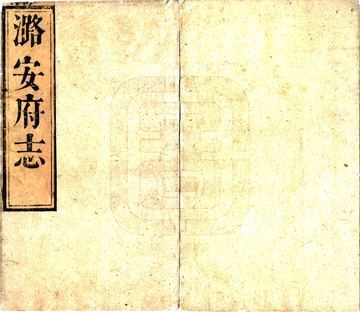 潞安府志